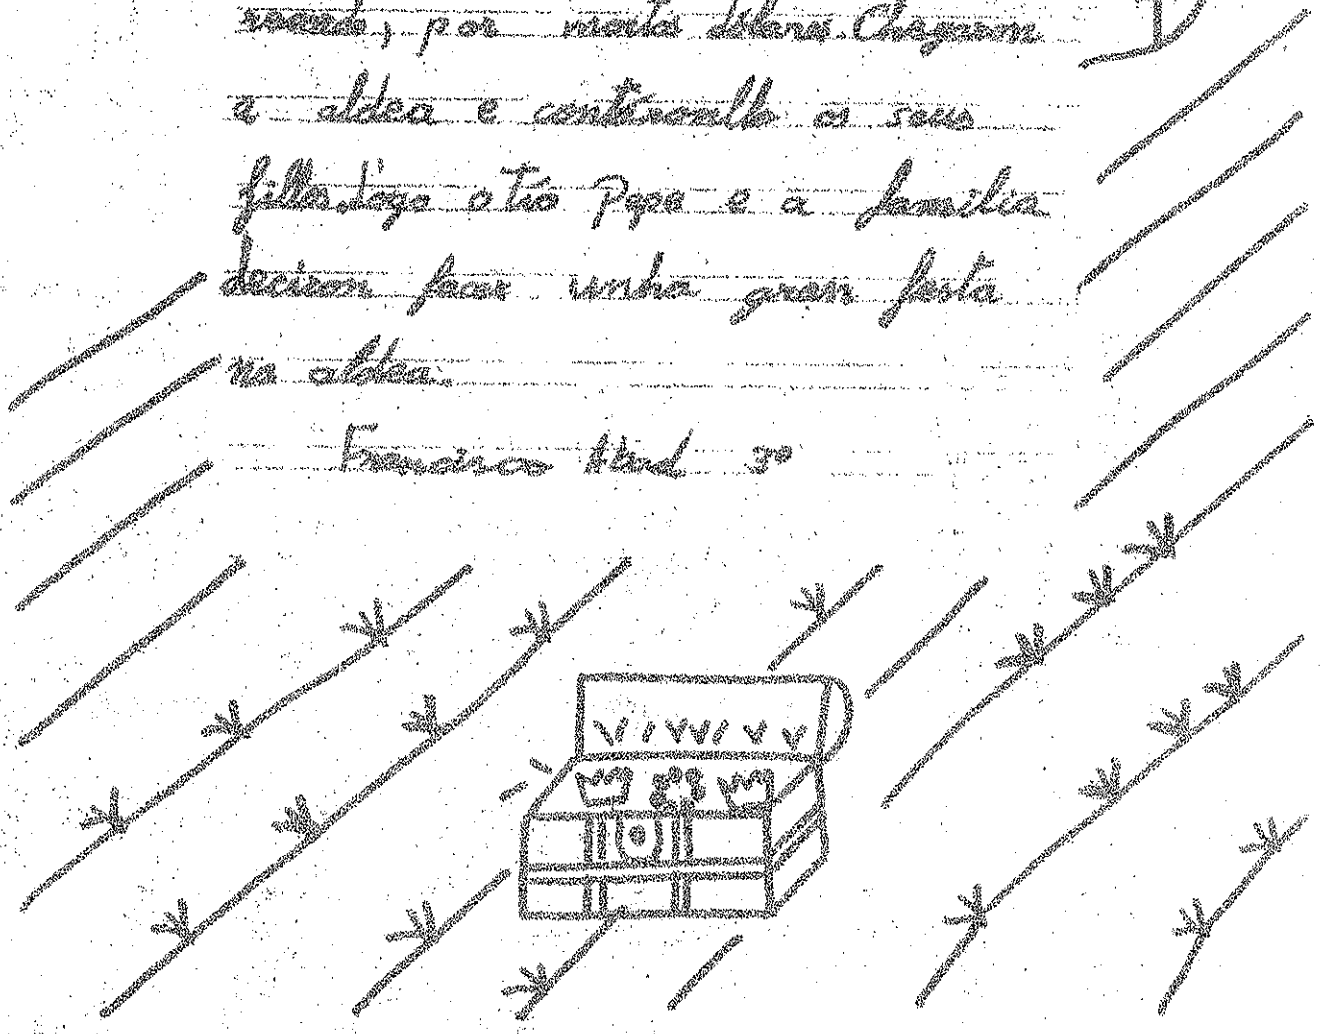 por moito diñeiro. Chegaron
a aldea e contáronllo os seus
fillos. Logo o tío Pepe e a familia
deciron facer unha gran festa
na aldea.
Francisco Abad 3º